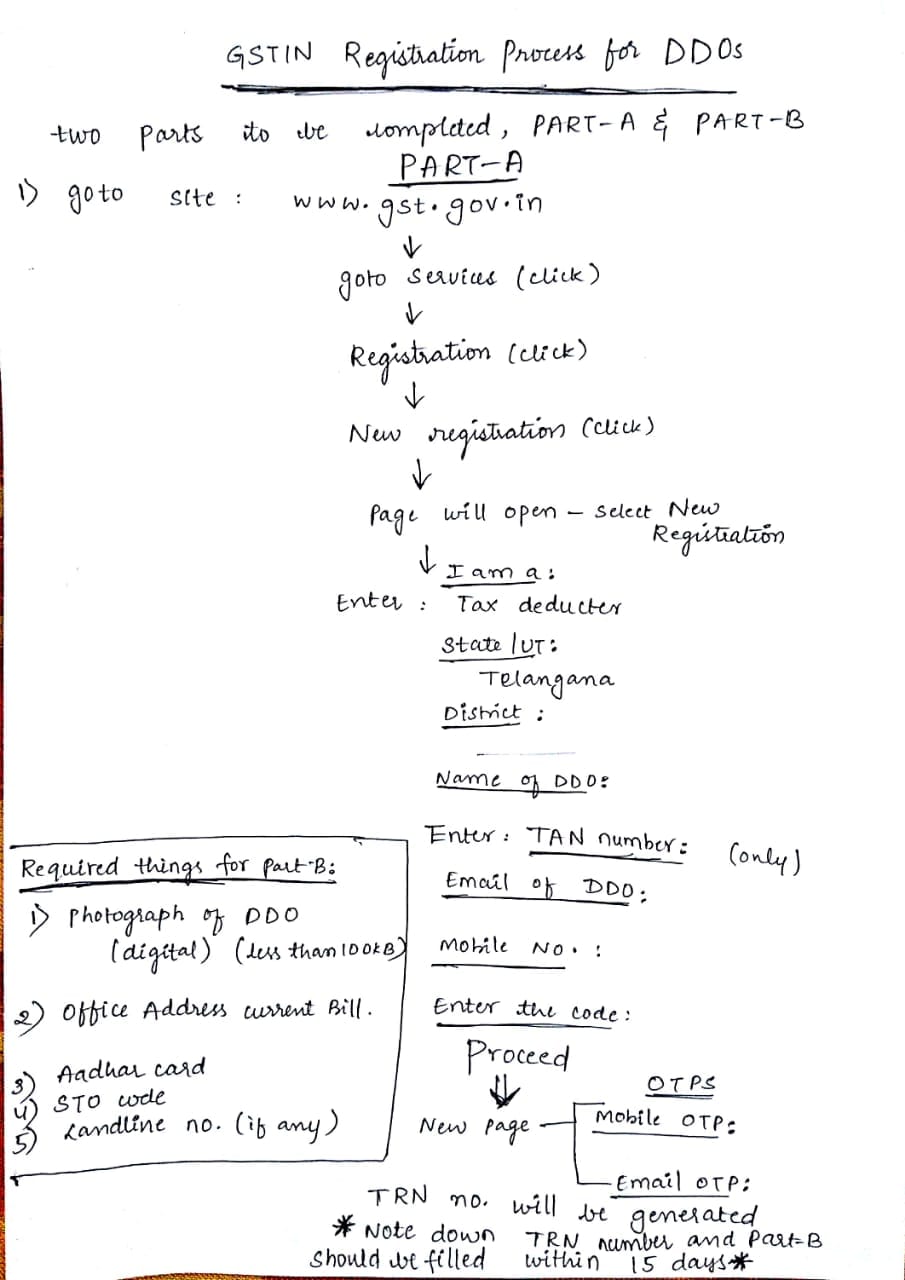 GSTIN Registration Process for DDOs
two parts to be completed, PART-A & PART-B
PART-A
1) goto site : www.gst.gov.in
↓
goto Services (click)
↓
Registration (click)
↓
New registration (click)
↓
Page will open - select New
Registration
↓ I am a:
Enter : Tax deducter
State/UT:
Telangana
District :
Name of DDO:
Enter: TAN number: (only)
Email of DDO:
Mobile No. :
Enter the code:
Proceed
↓
New page
OTPS
Mobile OTP:
Email OTP:
Required things for Part-B:
1) Photograph of DDO
(digital) (less than 100KB)
2) Office Address current Bill.
3) Aadhar card
4) STO code
5) Landline no. (if any)
TRN no. will be generated
* Note down TRN number and Part-B
should be filled within 15 days *